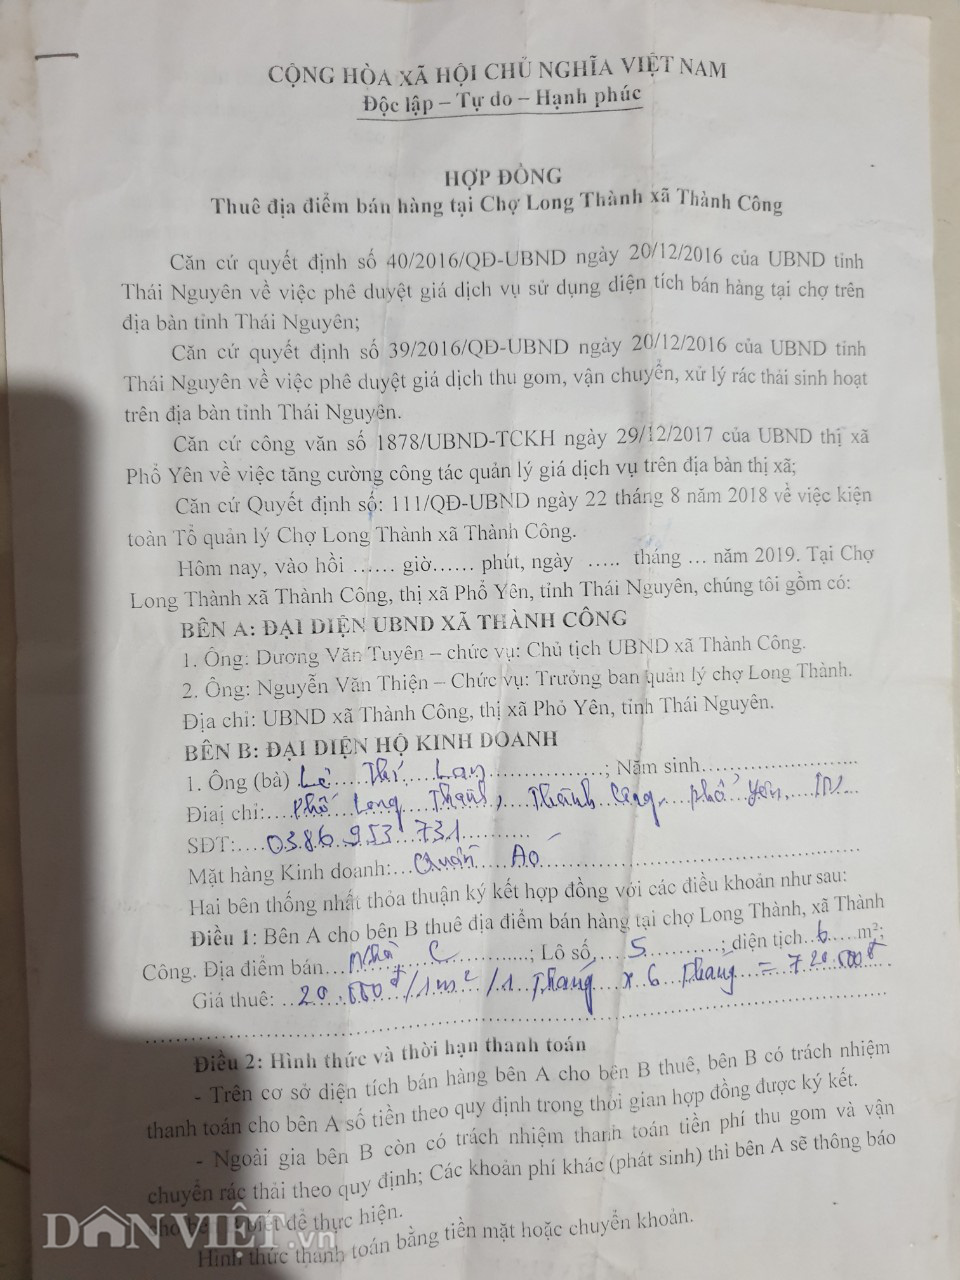 CỘNG HÒA XÃ HỘI CHỦ NGHĨA VIỆT NAM
Độc lập – Tự do – Hạnh phúc
HỢP ĐỒNG
Thuê địa điểm bán hàng tại Chợ Long Thành xã Thành Công
Căn cứ quyết định số 40/2016/QĐ-UBND ngày 20/12/2016 của UBND tỉnh
Thái Nguyên về việc phê duyệt giá dịch vụ sử dụng diện tích bán hàng tại chợ trên
địa bàn tỉnh Thái Nguyên;
Căn cứ quyết định số 39/2016/QĐ-UBND ngày 20/12/2016 của UBND tỉnh
Thái Nguyên về việc phê duyệt giá dịch thu gom, vận chuyển, xử lý rác thải sinh hoạt
trên địa bàn tỉnh Thái Nguyên.
Căn cứ công văn số 1878/UBND-TCKH ngày 29/12/2017 của UBND thị xã
Phổ Yên về việc tăng cường công tác quản lý giá dịch vụ trên địa bàn thị xã;
Căn cứ Quyết định số: 111/QĐ-UBND ngày 22 tháng 8 năm 2018 về việc kiện
toàn Tổ quản lý Chợ Long Thành xã Thành Công.
Hôm nay, vào hồi ...... giờ...... phút, ngày ..... tháng ... năm 2019. Tại Chợ
Long Thành xã Thành Công, thị xã Phổ Yên, tỉnh Thái Nguyên, chúng tôi gồm có:
BÊN A: ĐẠI DIỆN UBND XÃ THÀNH CÔNG
1. Ông: Dương Văn Tuyên – chức vụ: Chủ tịch UBND xã Thành Công.
2. Ông: Nguyễn Văn Thiện – Chức vụ: Trưởng ban quản lý chợ Long Thành.
Địa chỉ: UBND xã Thành Công, thị xã Phổ Yên, tỉnh Thái Nguyên.
BÊN B: ĐẠI DIỆN HỘ KINH DOANH
1. Ông (bà) Lê Thị Lan ; Năm sinh
Điaị chỉ: Phố Long Thành, Thành Công, Phổ Yên, TN
SĐT: 0386 953 731
Mặt hàng Kinh doanh: Quần Áo
Hai bên thống nhất thỏa thuận ký kết hợp đồng với các điều khoản như sau:
Điều 1: Bên A cho bên B thuê địa điểm bán hàng tại chợ Long Thành, xã Thành
Công. Địa điểm bán Nhà C ; Lô số 5 ; diện tích 6 m²;
Giá thuê: 20.000đ/1m²/1 Tháng x 6 Tháng = 720.000đ
Điều 2: Hình thức và thời hạn thanh toán
- Trên cơ sở diện tích bán hàng bên A cho bên B thuê, bên B có trách nhiệm
thanh toán cho bên A số tiền theo quy định trong thời gian hợp đồng được ký kết.
- Ngoài gia bên B còn có trách nhiệm thanh toán tiền phí thu gom và vận
chuyển rác thải theo quy định; Các khoản phí khác (phát sinh) thì bên A sẽ thông báo
cho bên B biết để thực hiện.
Hình thức thanh toán bằng tiền mặt hoặc chuyển khoản.
DÂN VIỆT.vn